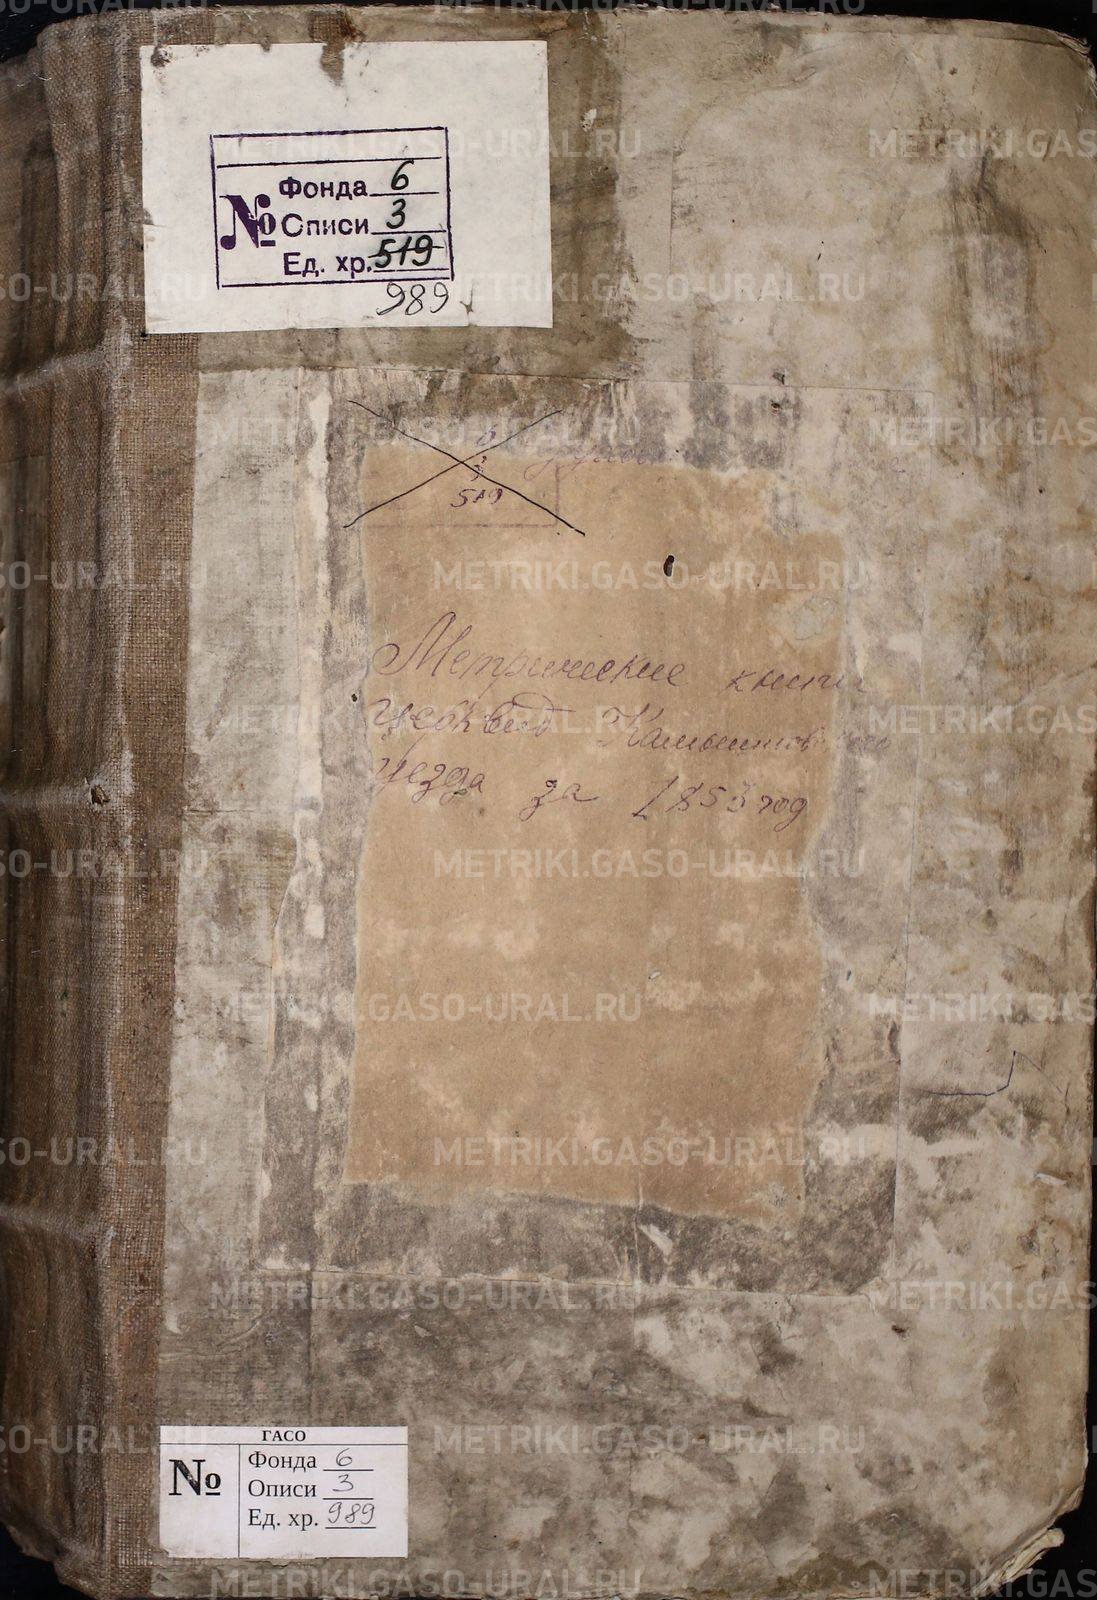 №
Фонда 6
Описи 3
Ед. хр. 519
989
6
3
519
Метрические книги
церквей Камышловского
уезда за 1853 год
ГАСО
№
Фонда 6
Описи 3
Ед. хр. 989
METRIKI.GASO-URAL.RU